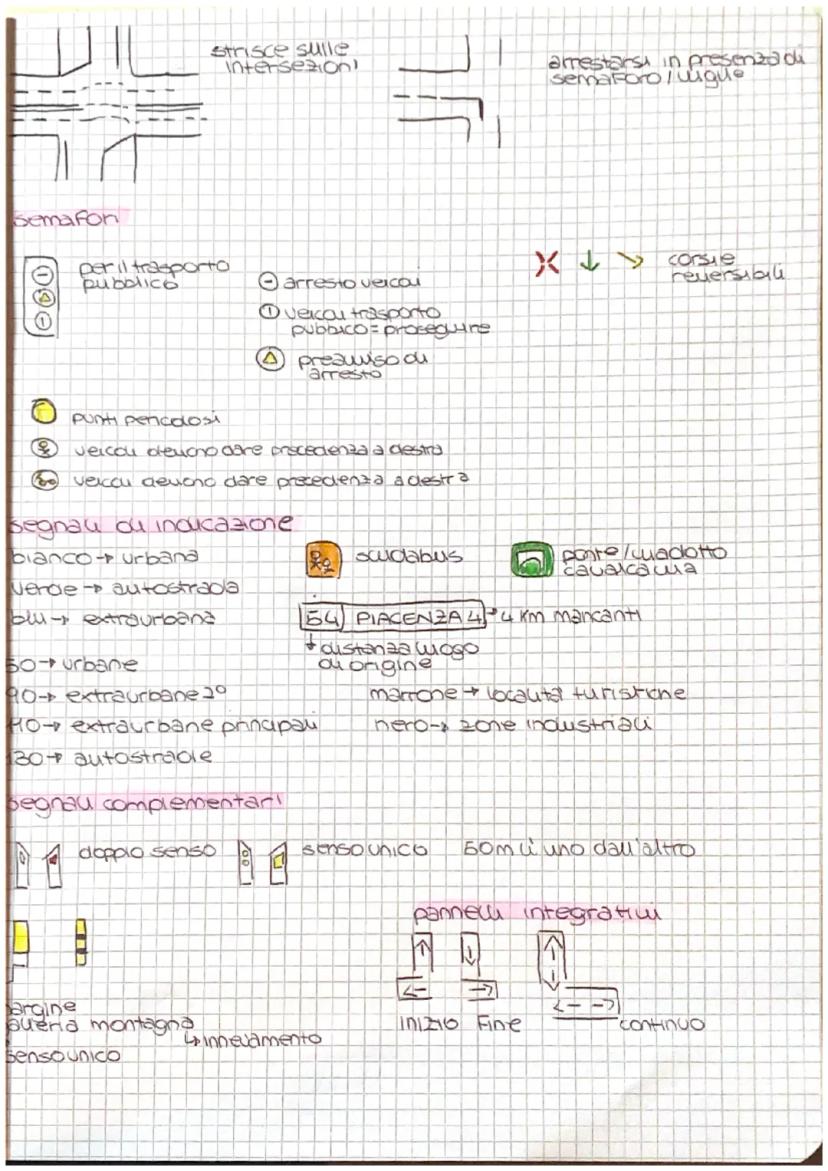 strisce sulle
intersezioni
arrestarsi in presenza di
semaforo/vigile
semafori
per il trasporto
pubblico
arresto veicoli
veicoli trasporto
pubblico = proseguire
preavviso di
arresto
corsie
reversibili
punti pericolosi
veicoli devono dare precedenza a destra
veicoli devono dare precedenza a destra
segnali di indicazione
bianco → urbana
scuolabus
ponte/viadotto
cavalcavia
verde → autostrada
blu → extraurbana
54 PIACENZA 4 → 4 km mancanti
↓ distanza luogo
di origine
50 → urbane
90 → extraurbane 2°
marrone → località turistiche
110 → extraurbane principali
nero → zone industriali
130 → autostrade
segnali complementari
doppio senso
senso unico
50m li uno dall'altro
pannelli integrativi
inizio
fine
continuo
argine
galleria montagna
↳ innevamento
senso unico